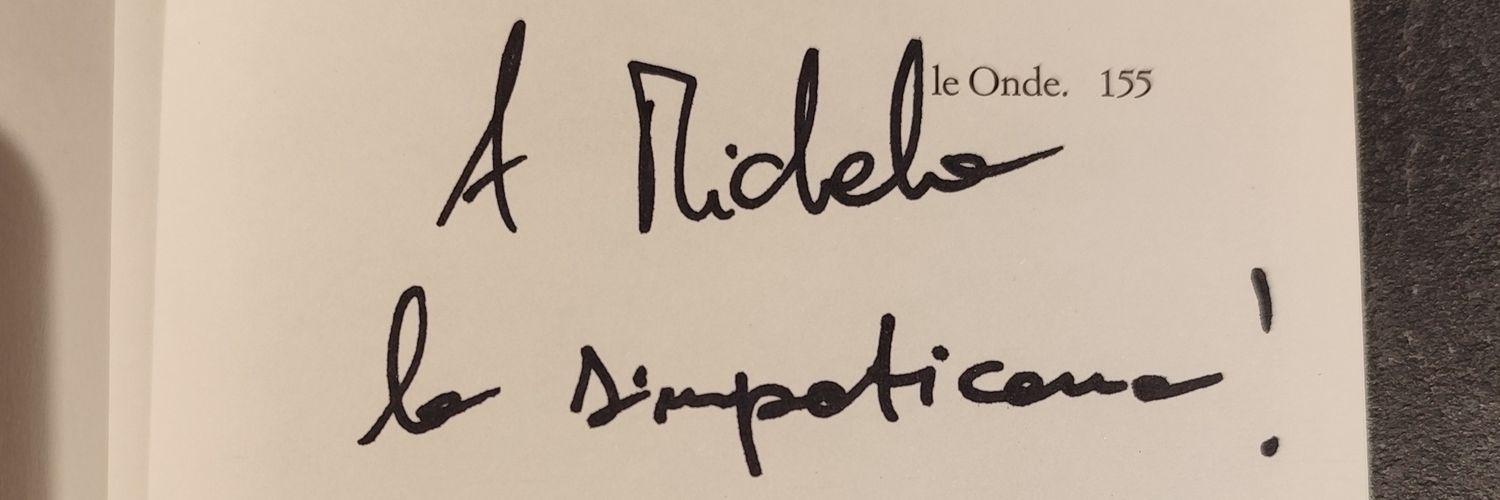 le Onde. 155
A Michela
la simpaticona!